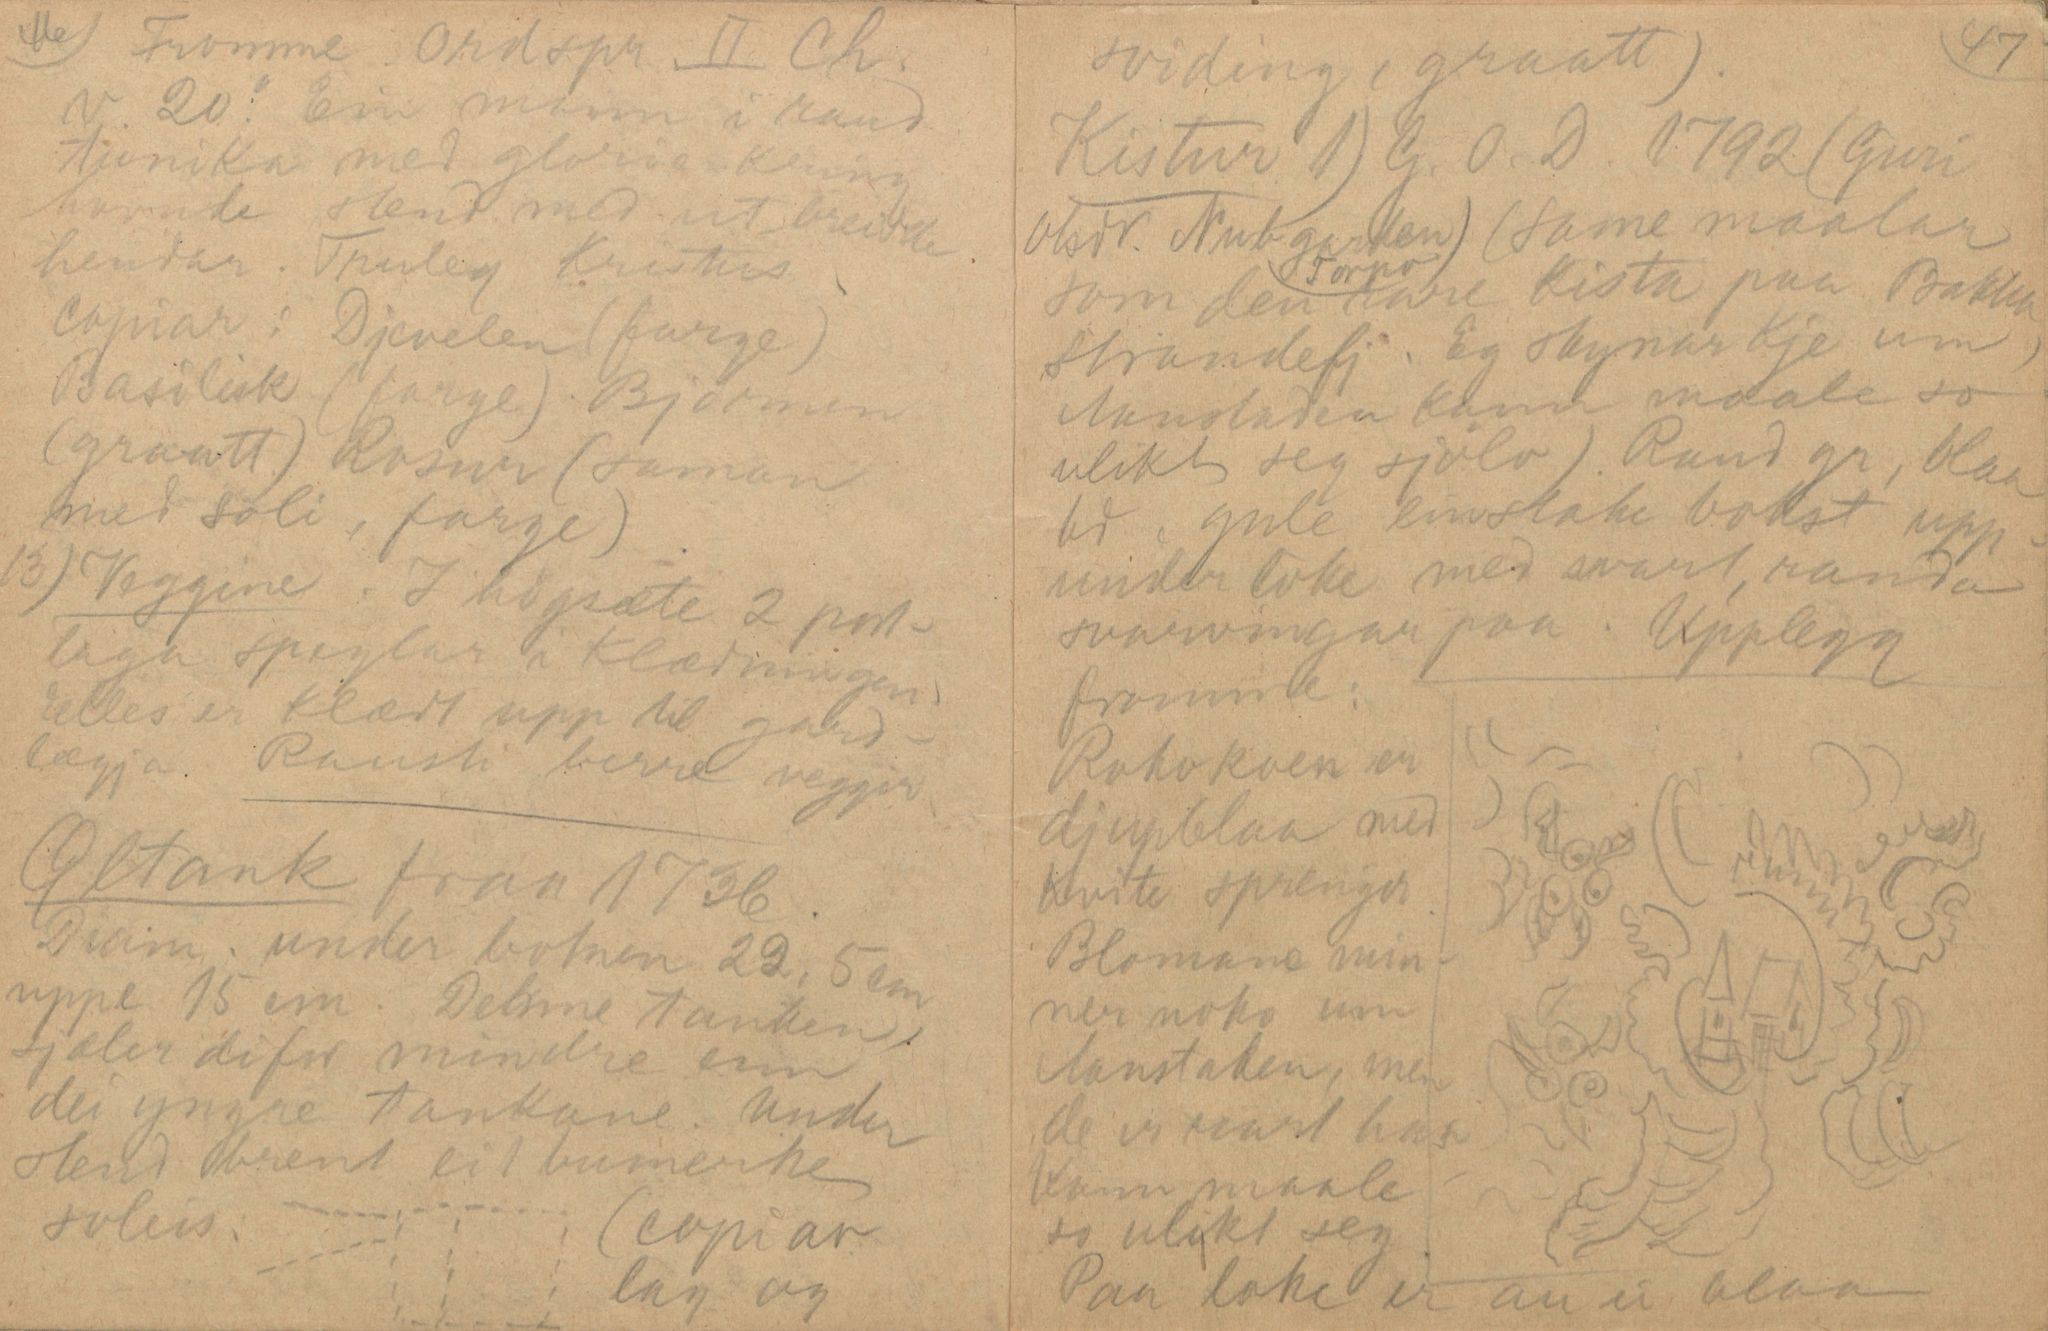 Fromme Ordspr. II Ch.
v. 20: Ein mann i raud
tjunika med gloria kring
hovude stend med utbreidde
hendar. Truleg Kristus
Copiar: Djevelen (farge)
Basilisk (farge). Bjørnen
(graatt) Rosur (saman
med soli, farge)
13) Veggine. I høgsæte 2 post-
liga speglar i klædningen,
Elles er klædt upp til gard-
lægja. Rausti berre veggir
Øltank fraa 1736.
Diam. under botnen 22,5 cm
uppe 15 cm. Denne tanken
sjøler difor mindre enn
dei yngre tankane. Under
stend brent eit bumerke
soleis: (copiar
lag og
47
sviding, graatt).
Kistur 1) G. O. D. 1792 (Guri
Olsdr. Nubgarden) (same maalar
Torpo
som den rare kista paa Bakka
Strandefj. Eg skynar kje um
Aanstaden kann maale so
ulikt seg sjølv). Raud gr, blaa
bd, gule einstake bokst upp-
under loke med svart, randa
svarvingar paa. Upplegg
framme:
Rokokoen er
djupblaa med
kvite sprengir
Blomane min-
ner noko um
Aanstaken, men
de er rart han
kann maale
so ulikt seg
Paa loke er au ei blaa